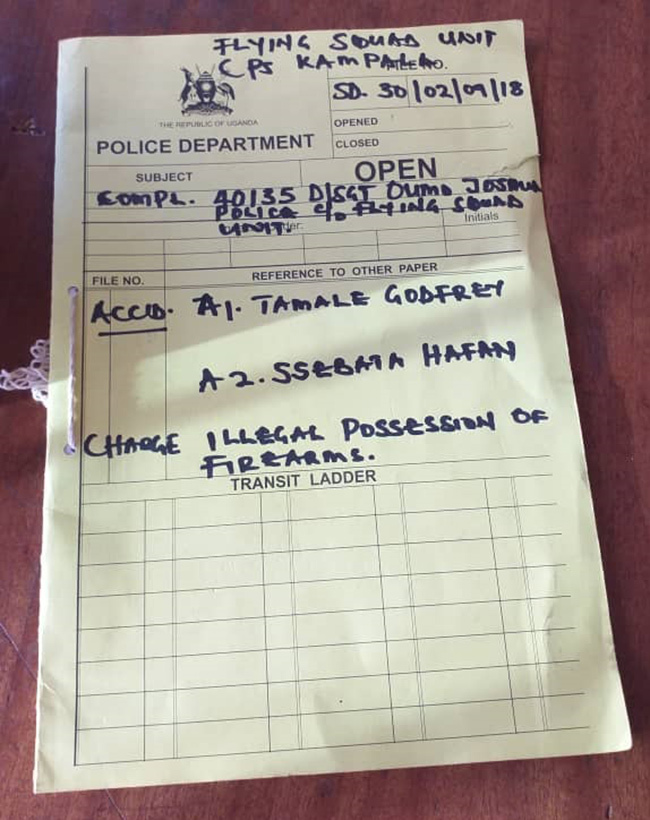 FLYING SQUAD UNIT
CPS KAMPALA
FILE NO.
SD. 30/02/09/18
THE REPUBLIC OF UGANDA
POLICE DEPARTMENT
OPENED
CLOSED
SUBJECT
OPEN
COMPL. 40135 D/SGT OUMO JOSHUA
POLICE C/O FLYING SQUAD
UNIT.
Initials
FILE NO.
REFERENCE TO OTHER PAPER
ACCD. A1. TAMALE GODFREY
A2. SSEBATA HAFAN
CHARGE ILLEGAL POSSESSION OF
FIREARMS.
TRANSIT LADDER